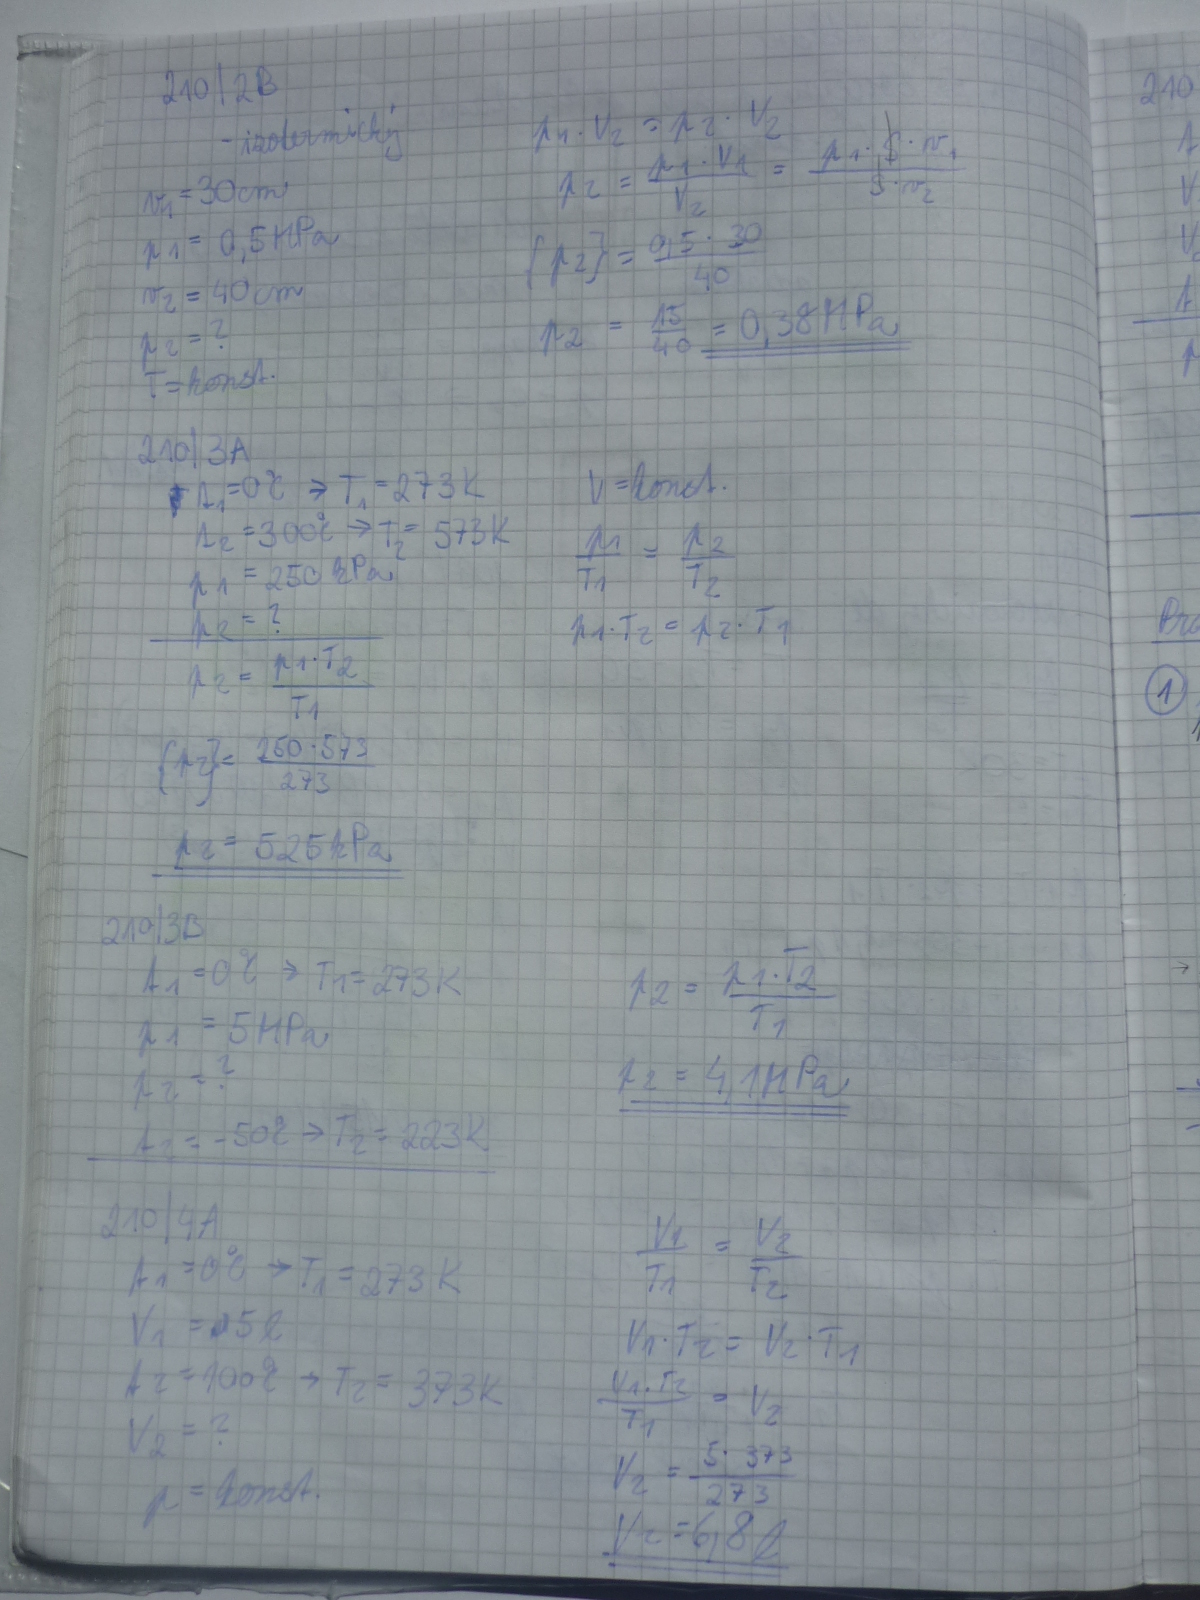 210/2B
- izotermický
v₁ = 30cm
p₁ = 0,5 MPa
v₂ = 40cm
p₂ = ?
T = konst.
p₁ · V₂ = p₂ · V₂
p₂ = p₁ · V₁ / V₂ = p₁ · S · v₁ / S · v₂
{p₂} = 0,5 · 30 / 40
p₂ = 15/40 = 0,38 MPa
210/3A
t₁ = 0°C → T₁ = 273K
t₂ = 300°C → T₂ = 573K
p₁ = 250 kPa
p₂ = ?
p₂ = p₁ · T₂ / T₁
{p₂} = 250 · 573 / 273
p₂ = 525 kPa
V = konst.
p₁ / T₁ = p₂ / T₂
p₁ · T₂ = p₂ · T₁
210/3B
t₁ = 0°C → T₁ = 273K
p₁ = 5 MPa
p₂ = ?
t₂ = -50°C → T₂ = 223K
p₂ = p₁ · T₂ / T₁
p₂ = 4,1 MPa
210/4A
t₁ = 0°C → T₁ = 273K
V₁ = 5l
t₂ = 100°C → T₂ = 373K
V₂ = ?
p = konst.
V₁ / T₁ = V₂ / T₂
V₁ · T₂ = V₂ · T₁
V₁ · T₂ / T₁ = V₂
V₂ = 5 · 373 / 273
V₂ = 6,8 l
210
1